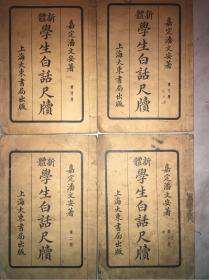 嘉定潘文安著
新體
學生白話尺牘
上海大東書局出版
嘉定潘文安著
新體
學生白話尺牘
上海大東書局出版
嘉定潘文安著
新體
學生白話尺牘
上海大東書局出版
嘉定潘文安著
新體
學生白話尺牘
上海大東書局出版